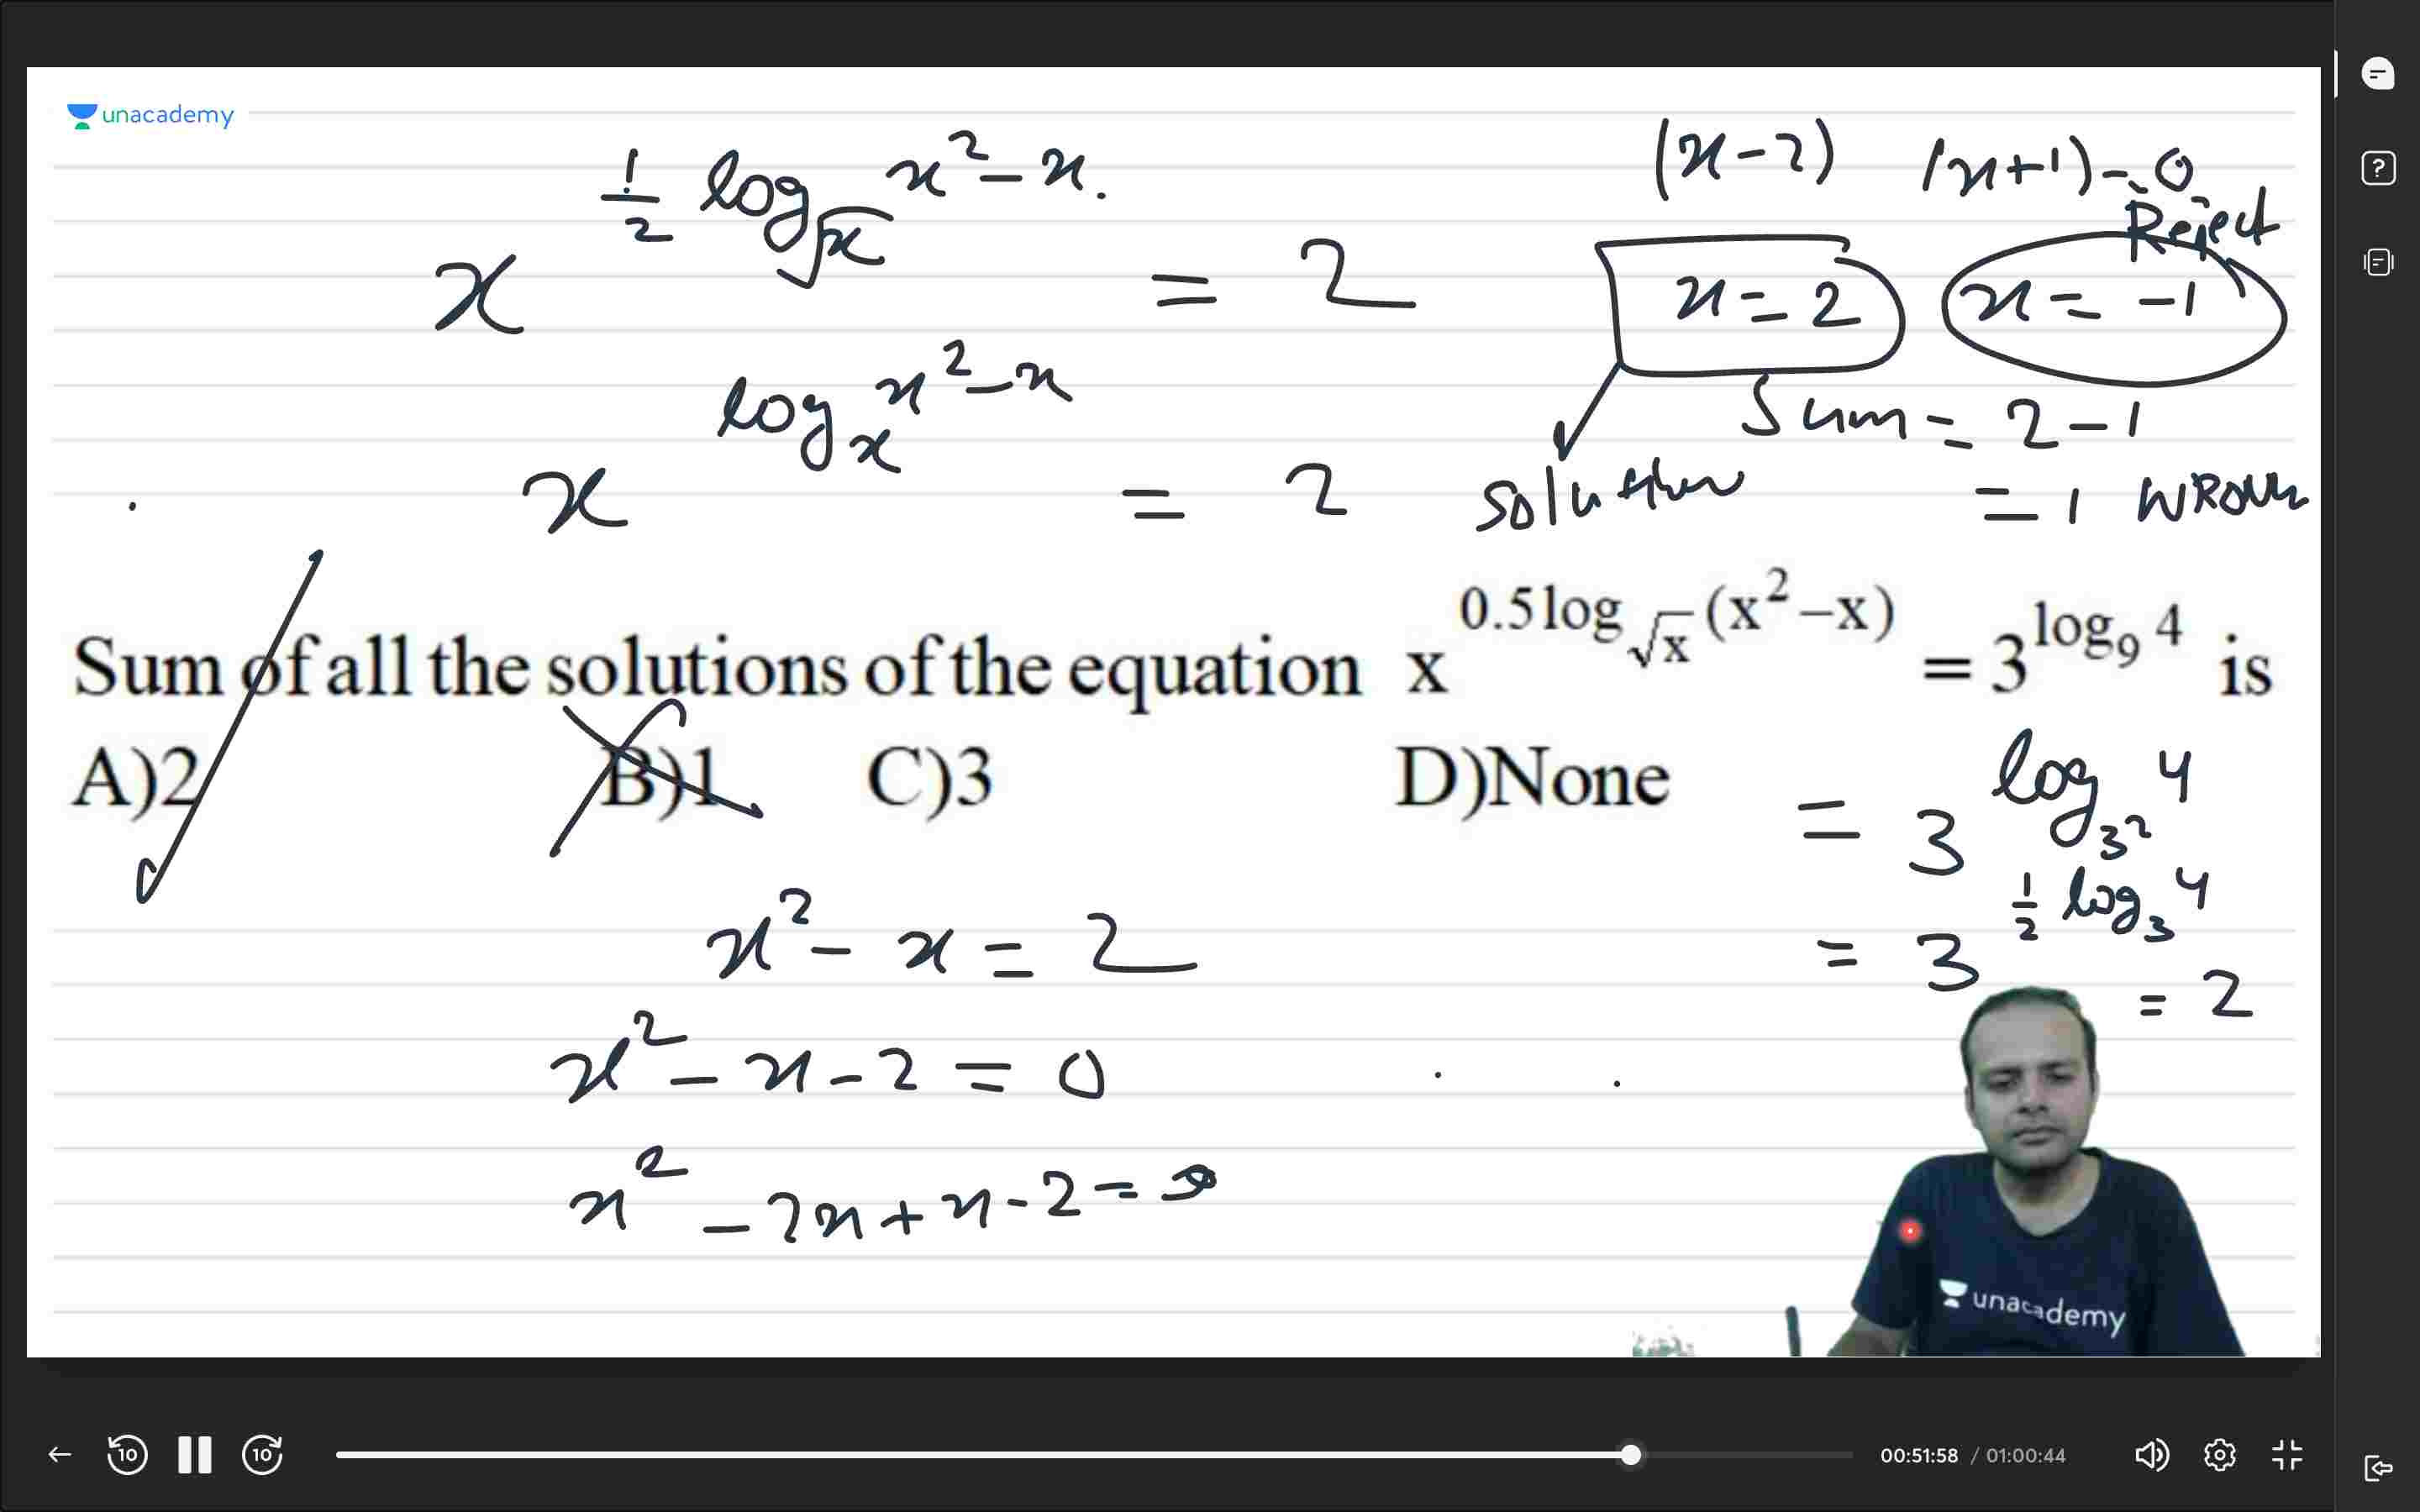 unacademy
x^(1/2 log_√x x²-x) = 2
x^(log_x x²-x) = 2
(x-2) (x+1)=0
Reject
x=2 x=-1
Sum = 2-1
solution = 1 WRONG
Sum of all the solutions of the equation x^(0.5 log_√x (x²–x)) = 3^(log₉ 4) is
A)2 B)1 C)3 D)None
= 3^(log_3² 4)
= 3^(1/2 log₃ 4)
= 2
x² - x = 2
x² - x - 2 = 0
x² - 2x + x - 2 = 0
unacademy
10 10 00:51:58 / 01:00:44